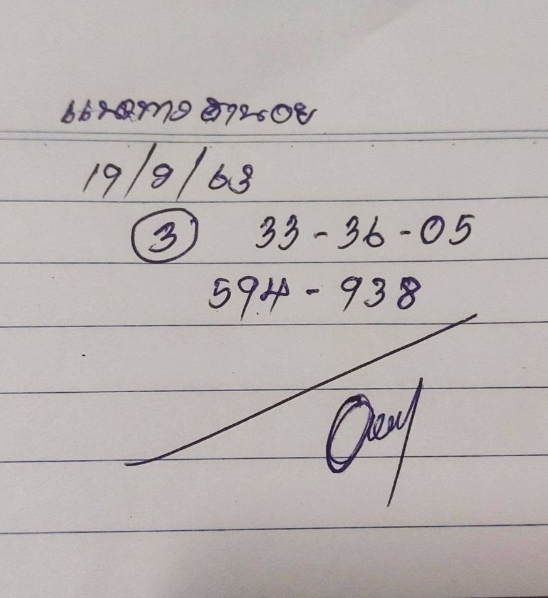 แนวทางฮานอย
19/9/63
3 33-36-05
594-938